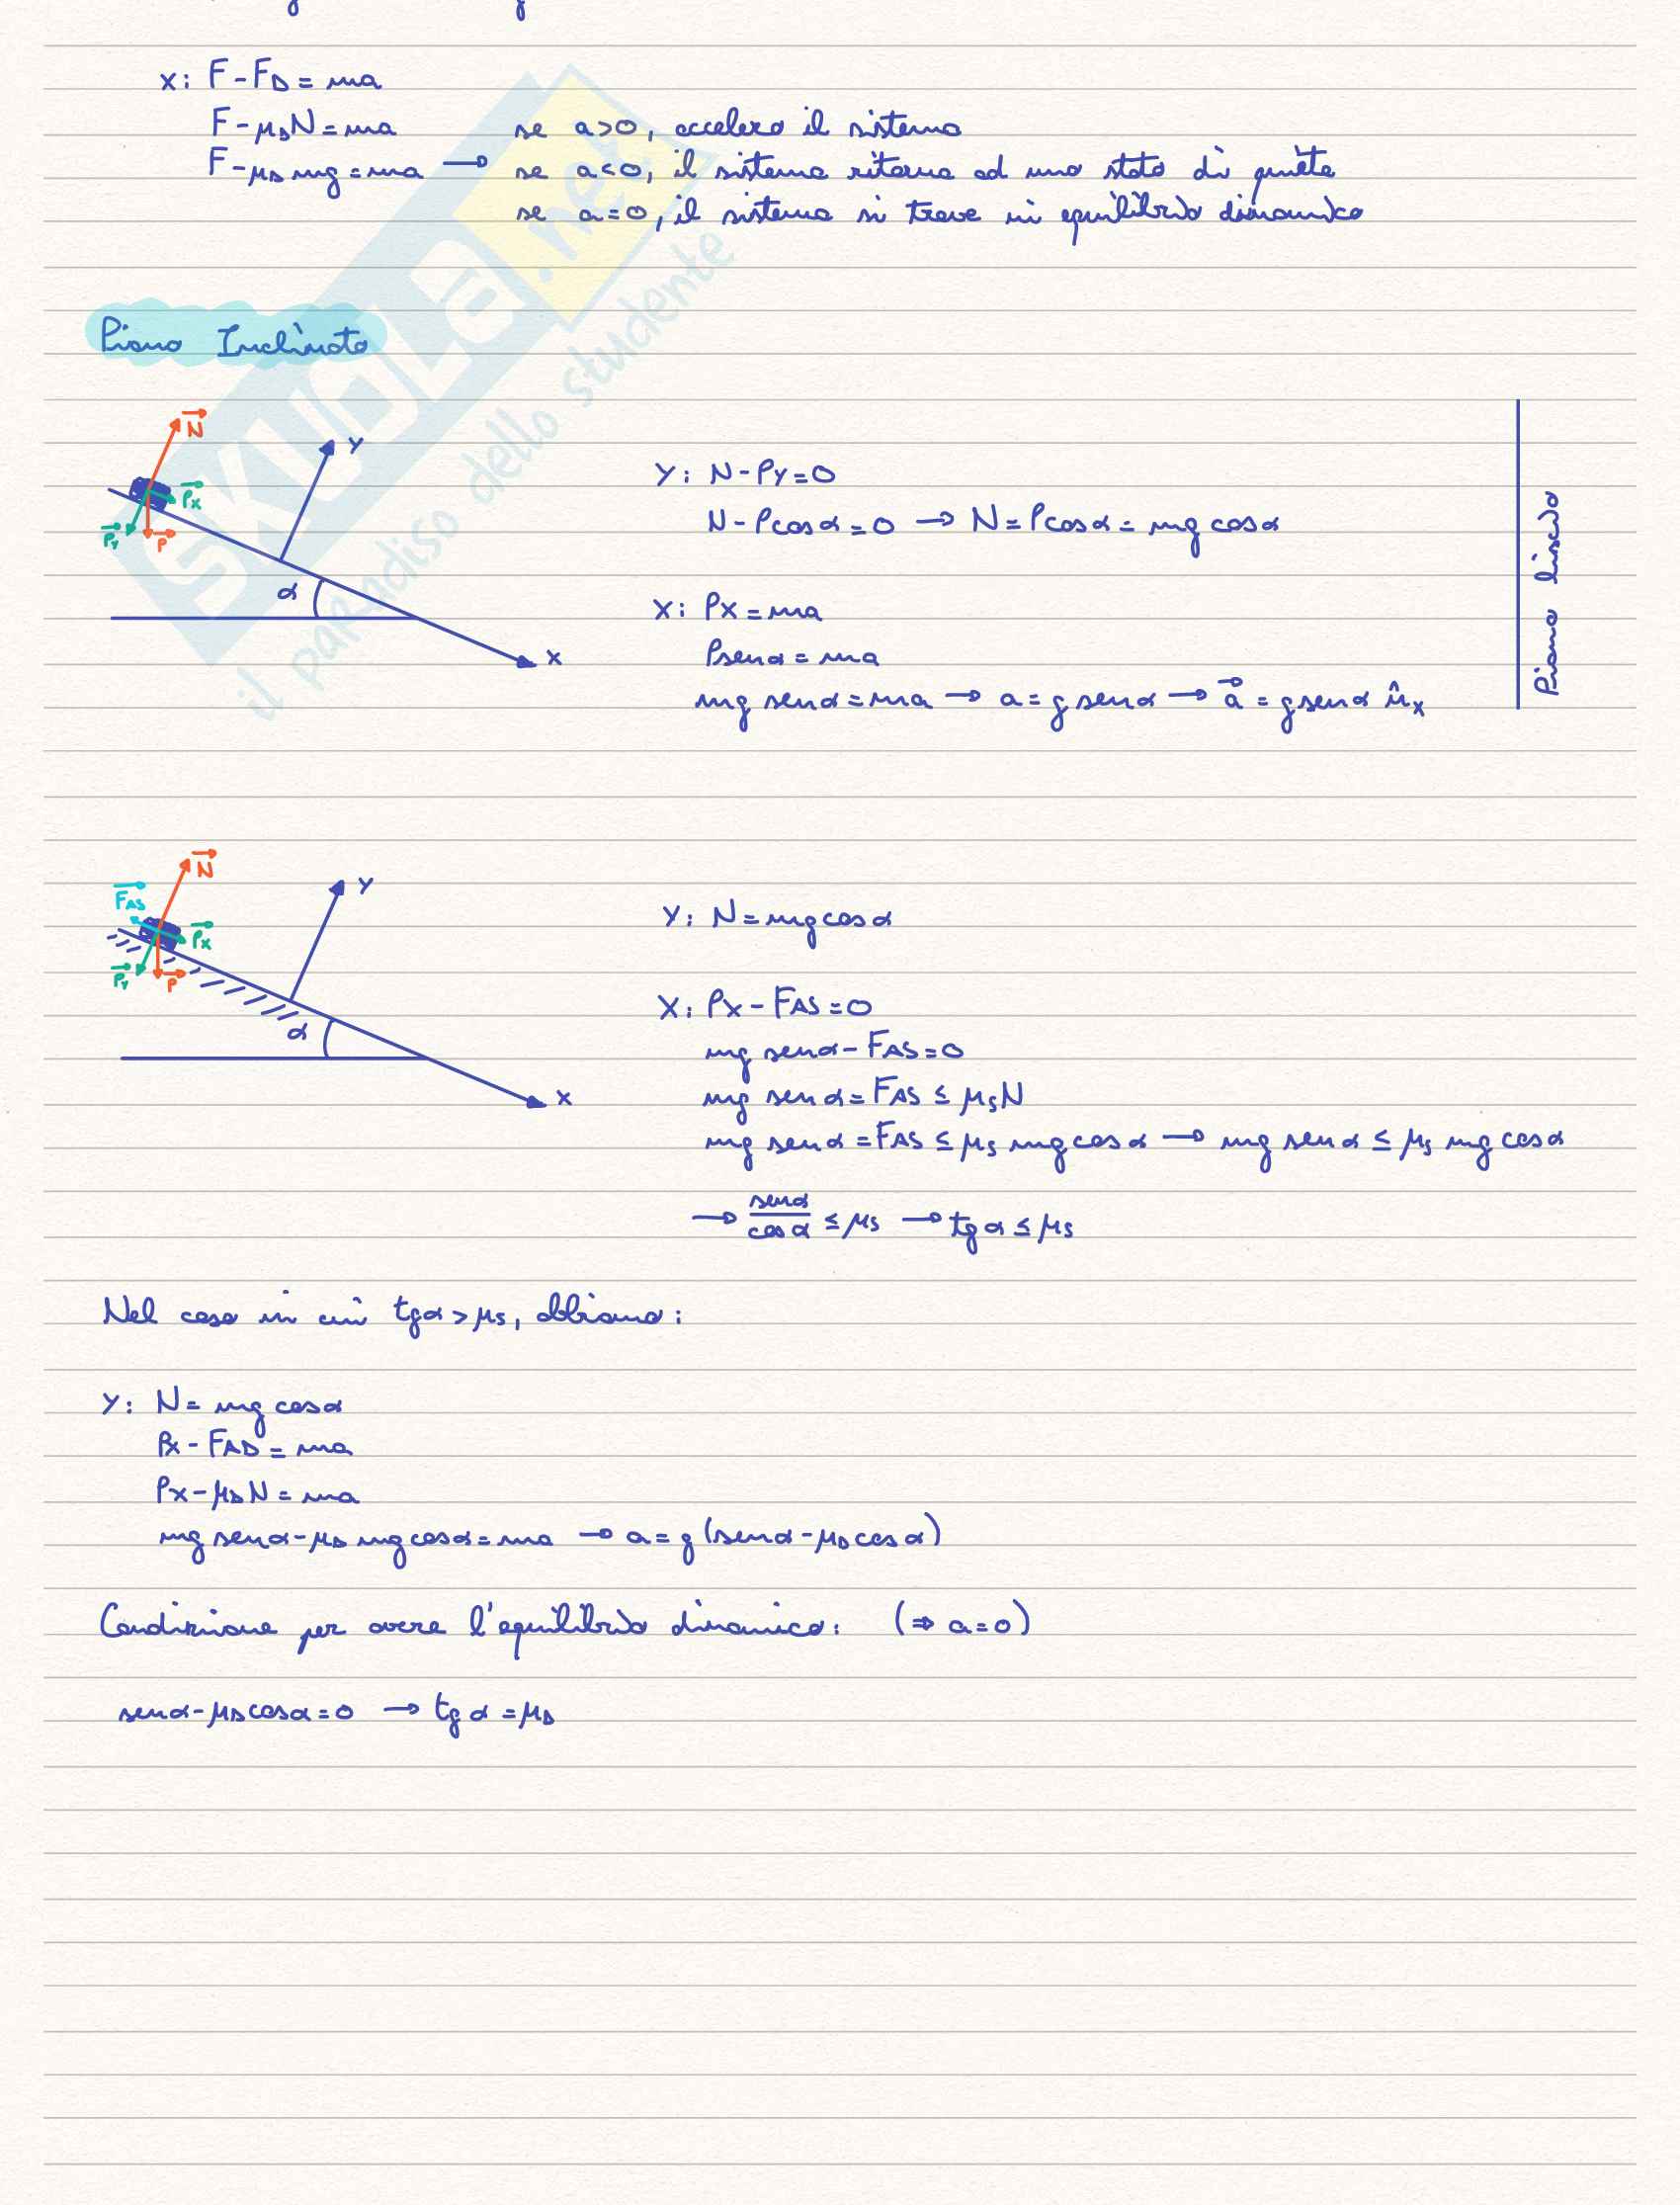 x: F - F_D = ma
F - μ_D N = ma
se a > 0, accelera il sistema
F - μ_D mg = ma → se a < 0, il sistema ritorna ad uno stato di quiete
se a = 0, il sistema si trova in equilibrio dinamico
SKUOLA.net
il paradiso dello studente
Piano Inclinato
N
y
Px
Py
P
α
x
Y: N - Py = 0
N - P cos α = 0 → N = P cos α = mg cos α
X: Px = ma
P sen α = ma
mg sen α = ma → a = g sen α → a⃗ = g sen α û_x
Piano liscio
N
F_AS
y
Px
Py
P
α
x
Y: N = mg cos α
X: Px - F_AS = 0
mg sen α - F_AS = 0
mg sen α = F_AS ≤ μ_S N
mg sen α = F_AS ≤ μ_S mg cos α → mg sen α ≤ μ_S mg cos α
→ sen α / cos α ≤ μ_S → tg α ≤ μ_S
Nel caso in cui tg α > μ_S, abbiamo:
Y: N = mg cos α
Px - F_AD = ma
Px - μ_D N = ma
mg sen α - μ_D mg cos α = ma → a = g (sen α - μ_D cos α)
Condizione per avere l'equilibrio dinamico: (⇒ a = 0)
sen α - μ_D cos α = 0 → tg α = μ_D